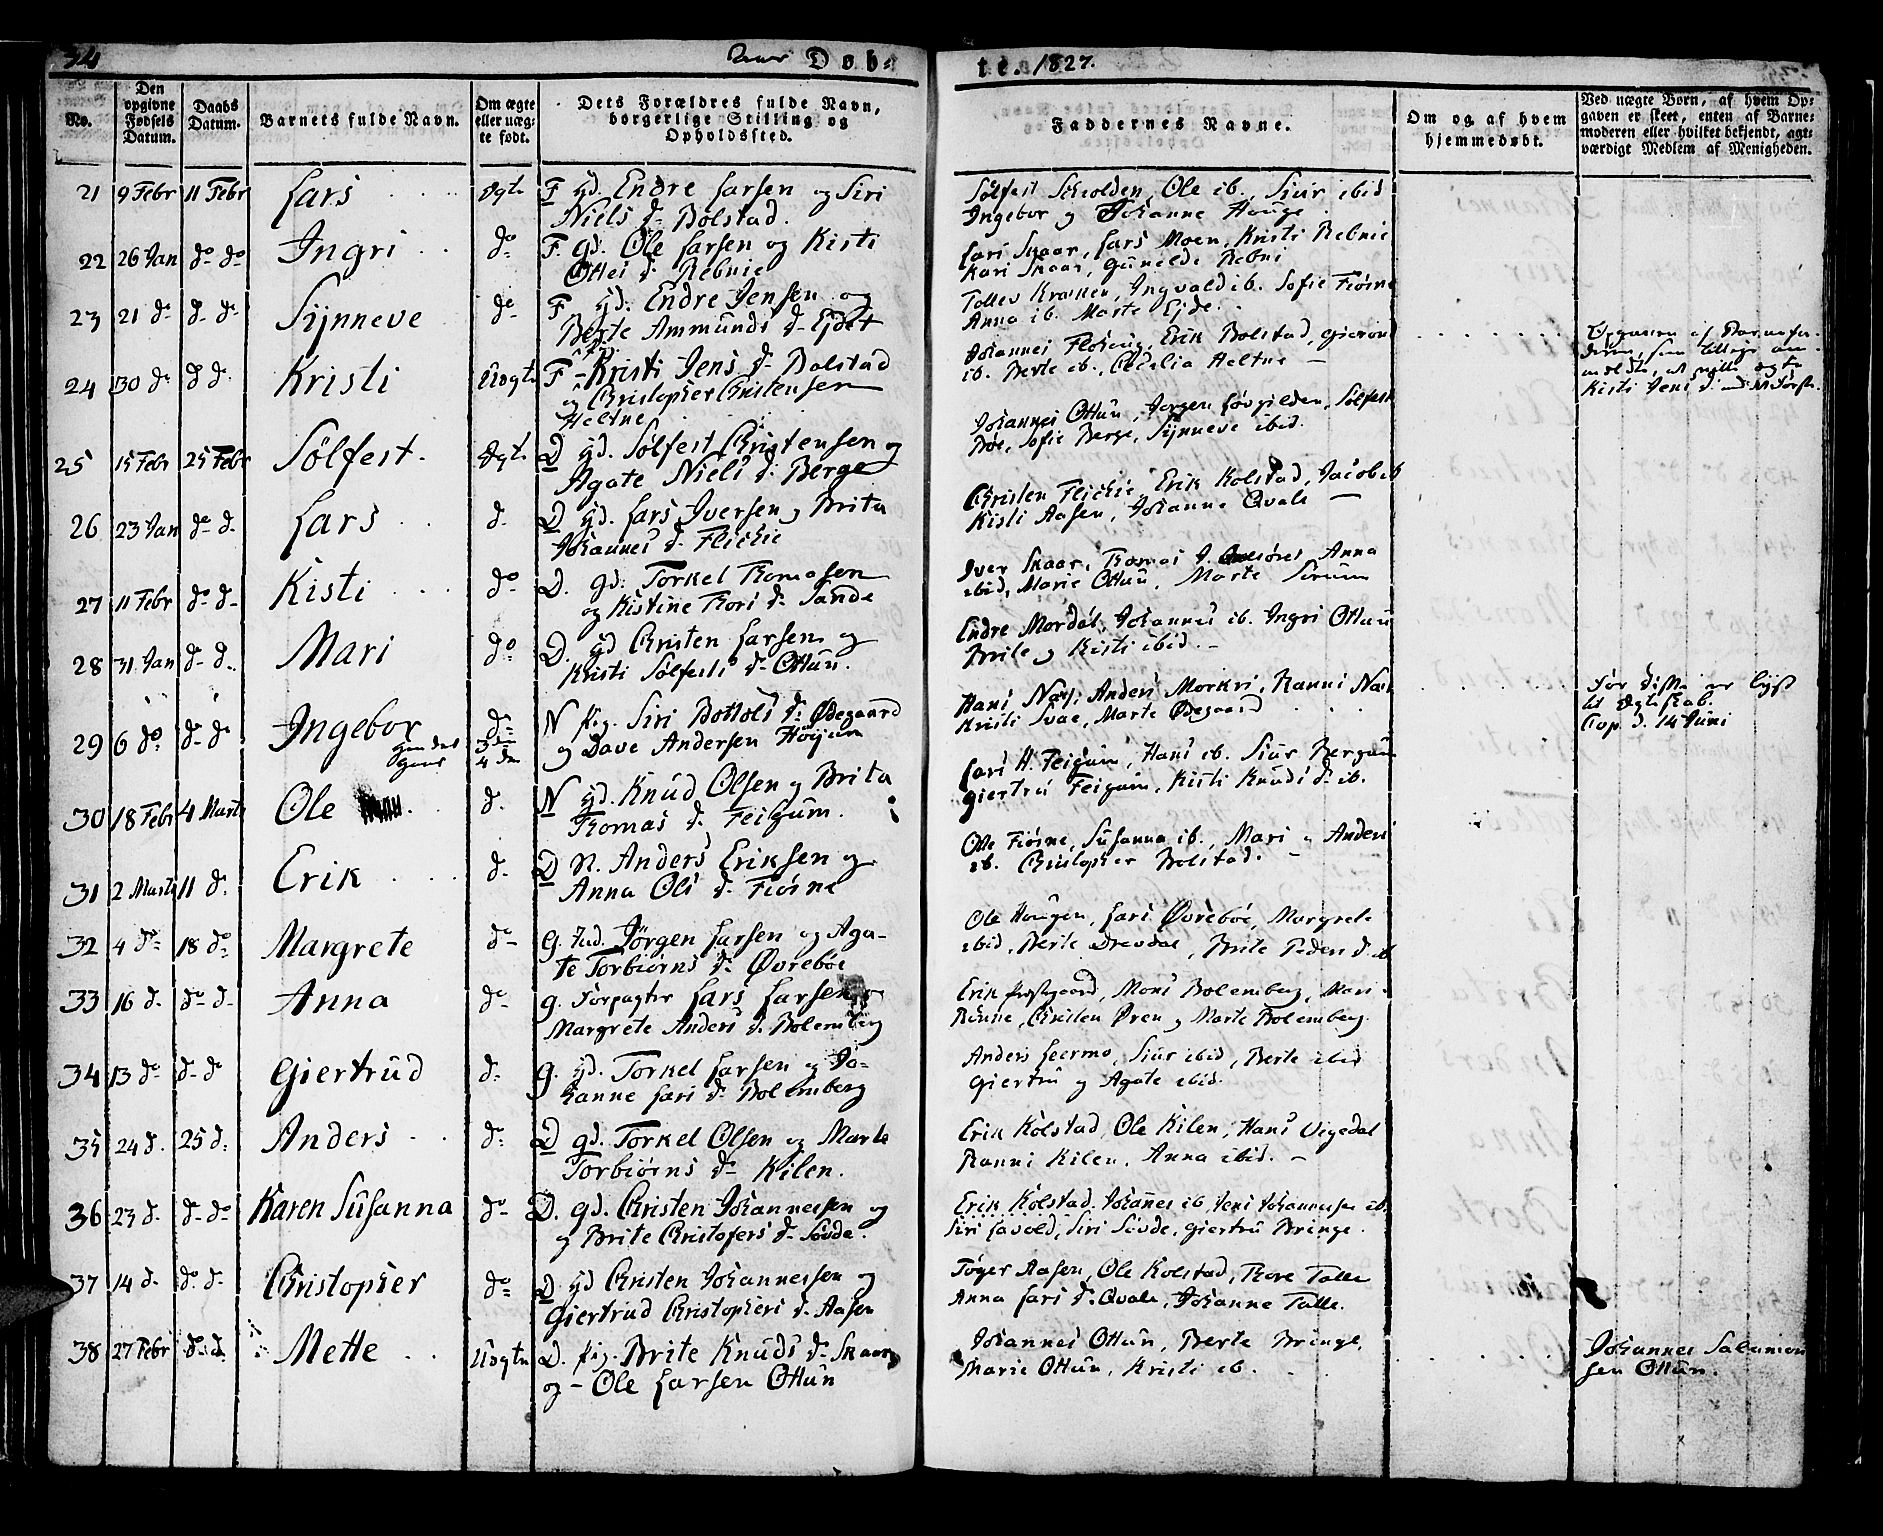 34
Døb-
te. 1827.
No.
Den opgivne Fødsels Datum.
Daabs Datum.
Barnets fulde Navn.
Om ægte eller uægte født.
Dets Forældres fulde Navn, borgerlige Stilling og Opholdssted.
Faddernes Navne.
Om og af hvem hjemmedøbt.
Ved uægte Børn, af hvem Opgaven er skeet, enten af Barnemoderen eller hvilket bekjendt, agtværdigt Medlem af Menigheden.
21 9 Febr 11 Febr Lars Ægte F gd. Endre Larsen og Siri
Niels d. Bolstad.
Sølfest Skiolden, Ole ib., Siur ibid
Ingebor og Johanne Houge
22 26 Jan do do Ingri do F. gd. Ole Larsen og Kisti
Ottes d. Rebnie
Lars Skaar, Lars Moen, Kristi Rebnie
Kari Skaar, Gunilde Rebni
23 21 do do do Synneve do F gd. Endre Jensen og
Berte Ammunds d. Ejdet
Tollev Kroken, Ingvald ib. Sofie Fiørne
Anna ib. Marte Ejde.
24 30 do d d. Kristi Uægte F - Kristi Jens d. Bolstad
og Christopher Christensen
Heltne
Johannes Flohoug, Erik Bolstad, Gierond
ib. Berte ib., Cecelia Heltne
Kisti Jens d.
25 15 Febr 25 Febr Sølfest Ægte D gd. Sølfest Christensen og
Agate Niels d. Berge
Johannes Ottun, Jørgen Løvgilden, Sølfest
Bøe, Sofie Berge, Synneve ibid.
26 23 Jan do d. Lars d. D gd. Lars Iversen og Brita
Johannes d. Flickie
Christen Flickie, Erik Kolstad, Jacob ib
Kisti Aasen, Johanne Qvale
27 11 Febr do d. Kisti do D. gd. Torkel Thomasen
og Kistine Thors d. Sande
Iver Skaar, Thomas Anna
ibid, Marie Ottun, Marte
28 31 Jan d. d. Mari do D. gd Christen Larsen og
Kristi Sølfests d. Ottun.
Endre Mordal, Johannes ib. Ingri Ottun
Brite og Kisti ibid.
29 6 do d. d. Ingebor do N pig. Siri Botols d. Ødegaard
og Dave Andersen Høyum
3 die
4 de
Hans Næs, Anders Morkri, Ranni Næs
Kristi Svae, Marte Ødegaard
Før disse er lyst
til Ægteskab.
Cop. d. 14 Juni
30 18 Febr 4 Marts Ole d. N gd. Knud Olsen og Brita
Thomas d. Feigum.
Lars H. Feigum, Hans ib. Siur Bergum
Giertru Feigum, Kisti Knuds d. ib.
31 2 Marts 11 d. Erik d. D N. Anders Eriksen og
Anna Ols d. Fiørne
Ole Fiørne, Susanna ib., Mari Anders
ib. Christopher Bolstad.
32 4 do 18 do Margrete do G. Jørgen Larsen og Aga-
te Torbiørns d. Øvrebøe
Ole Hougen, Lars Øvrebøe, Margrete
ibid, Berte Drevdal, Brite Peders d. ib
33 16 d. do d. Anna do G. Forpagter Lars Larsen og
Margrete Anders d. Bolemberg
Erik Prestgaard, Mons Bolemberg, Mari
Rønne, Christen Øren og Marte Bolemberg.
34 13 do d. do Giertrud d. G. gd. Torkel Larsen og Jo-
hanne Lars d. Bolemberg
Anders Leermo, Siur ibid, Berte ibid
Giertru og Agate ibid.
35 24 d. 25 d. Anders do D gd. Torkel Olsen og Marte
Torbiørns d. Kilen.
Erik Kolstad, Ole Kilen, Hans Vigedal
Ranni Kilen, Anna ibid.
36 23 d. d. do Karen Susanna do D. gd. Christen Johannessen og
og Brite Christofers d. Søvde.
Erik Kolstad, Johannes ib, Jens Johannessen ib.
Siri Lavold, Siri Søvde, Giertru Bringe.
37 14 d. do d. Christopher do D gd Christen Johannessen og
Giertrud Christophers d. Aasen
Tøger Aasen, Ole Kolstad, Thore Talle
Anna Lars d. Qvale, Johanne Talle.
38 27 Febr d. d. Mette Uægte D. pig. Brite Knuds d. Skaar
og - Ole Larsen Ottun
Johannes Ottun, Berte Bringe,
Marie Ottun, Kristi ib.
Johannes Salamon
sen Ottun.